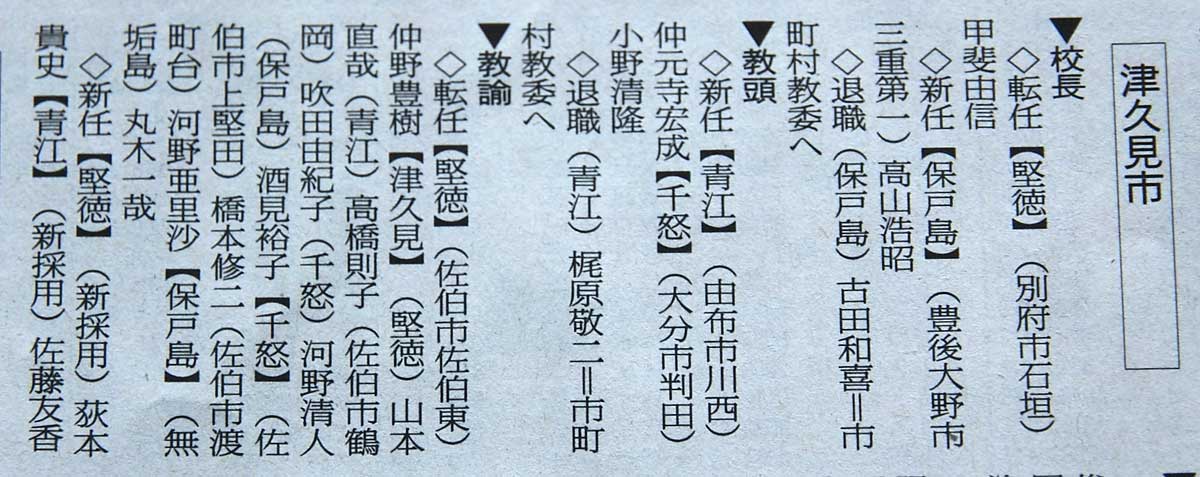 津久見市
▼校長
◇転任【堅徳】(別府市石垣)
甲斐由信
◇新任【保戸島】(豊後大野市
三重第一)高山浩昭
◇退職(保戸島)古田和喜＝市
町村教委へ
▼教頭
◇新任【青江】(由布市川西)
仲元寺宏成【千怒】(大分市判田)
小野清隆
◇退職(青江)梶原敬二＝市町
村教委へ
▼教諭
◇転任【堅徳】(佐伯市佐伯東)
仲野豊樹【津久見】(堅徳)山本
直哉(青江)高橋則子(佐伯市鶴
岡)吹田由紀子(千怒)河野清人
(保戸島)酒見裕子【千怒】(佐
伯市上堅田)橋本修二(佐伯市渡
町台)河野亜里沙【保戸島】(無
垢島)丸木一哉
◇新任【堅徳】(新採用)荻本
貴史【青江】(新採用)佐藤友香